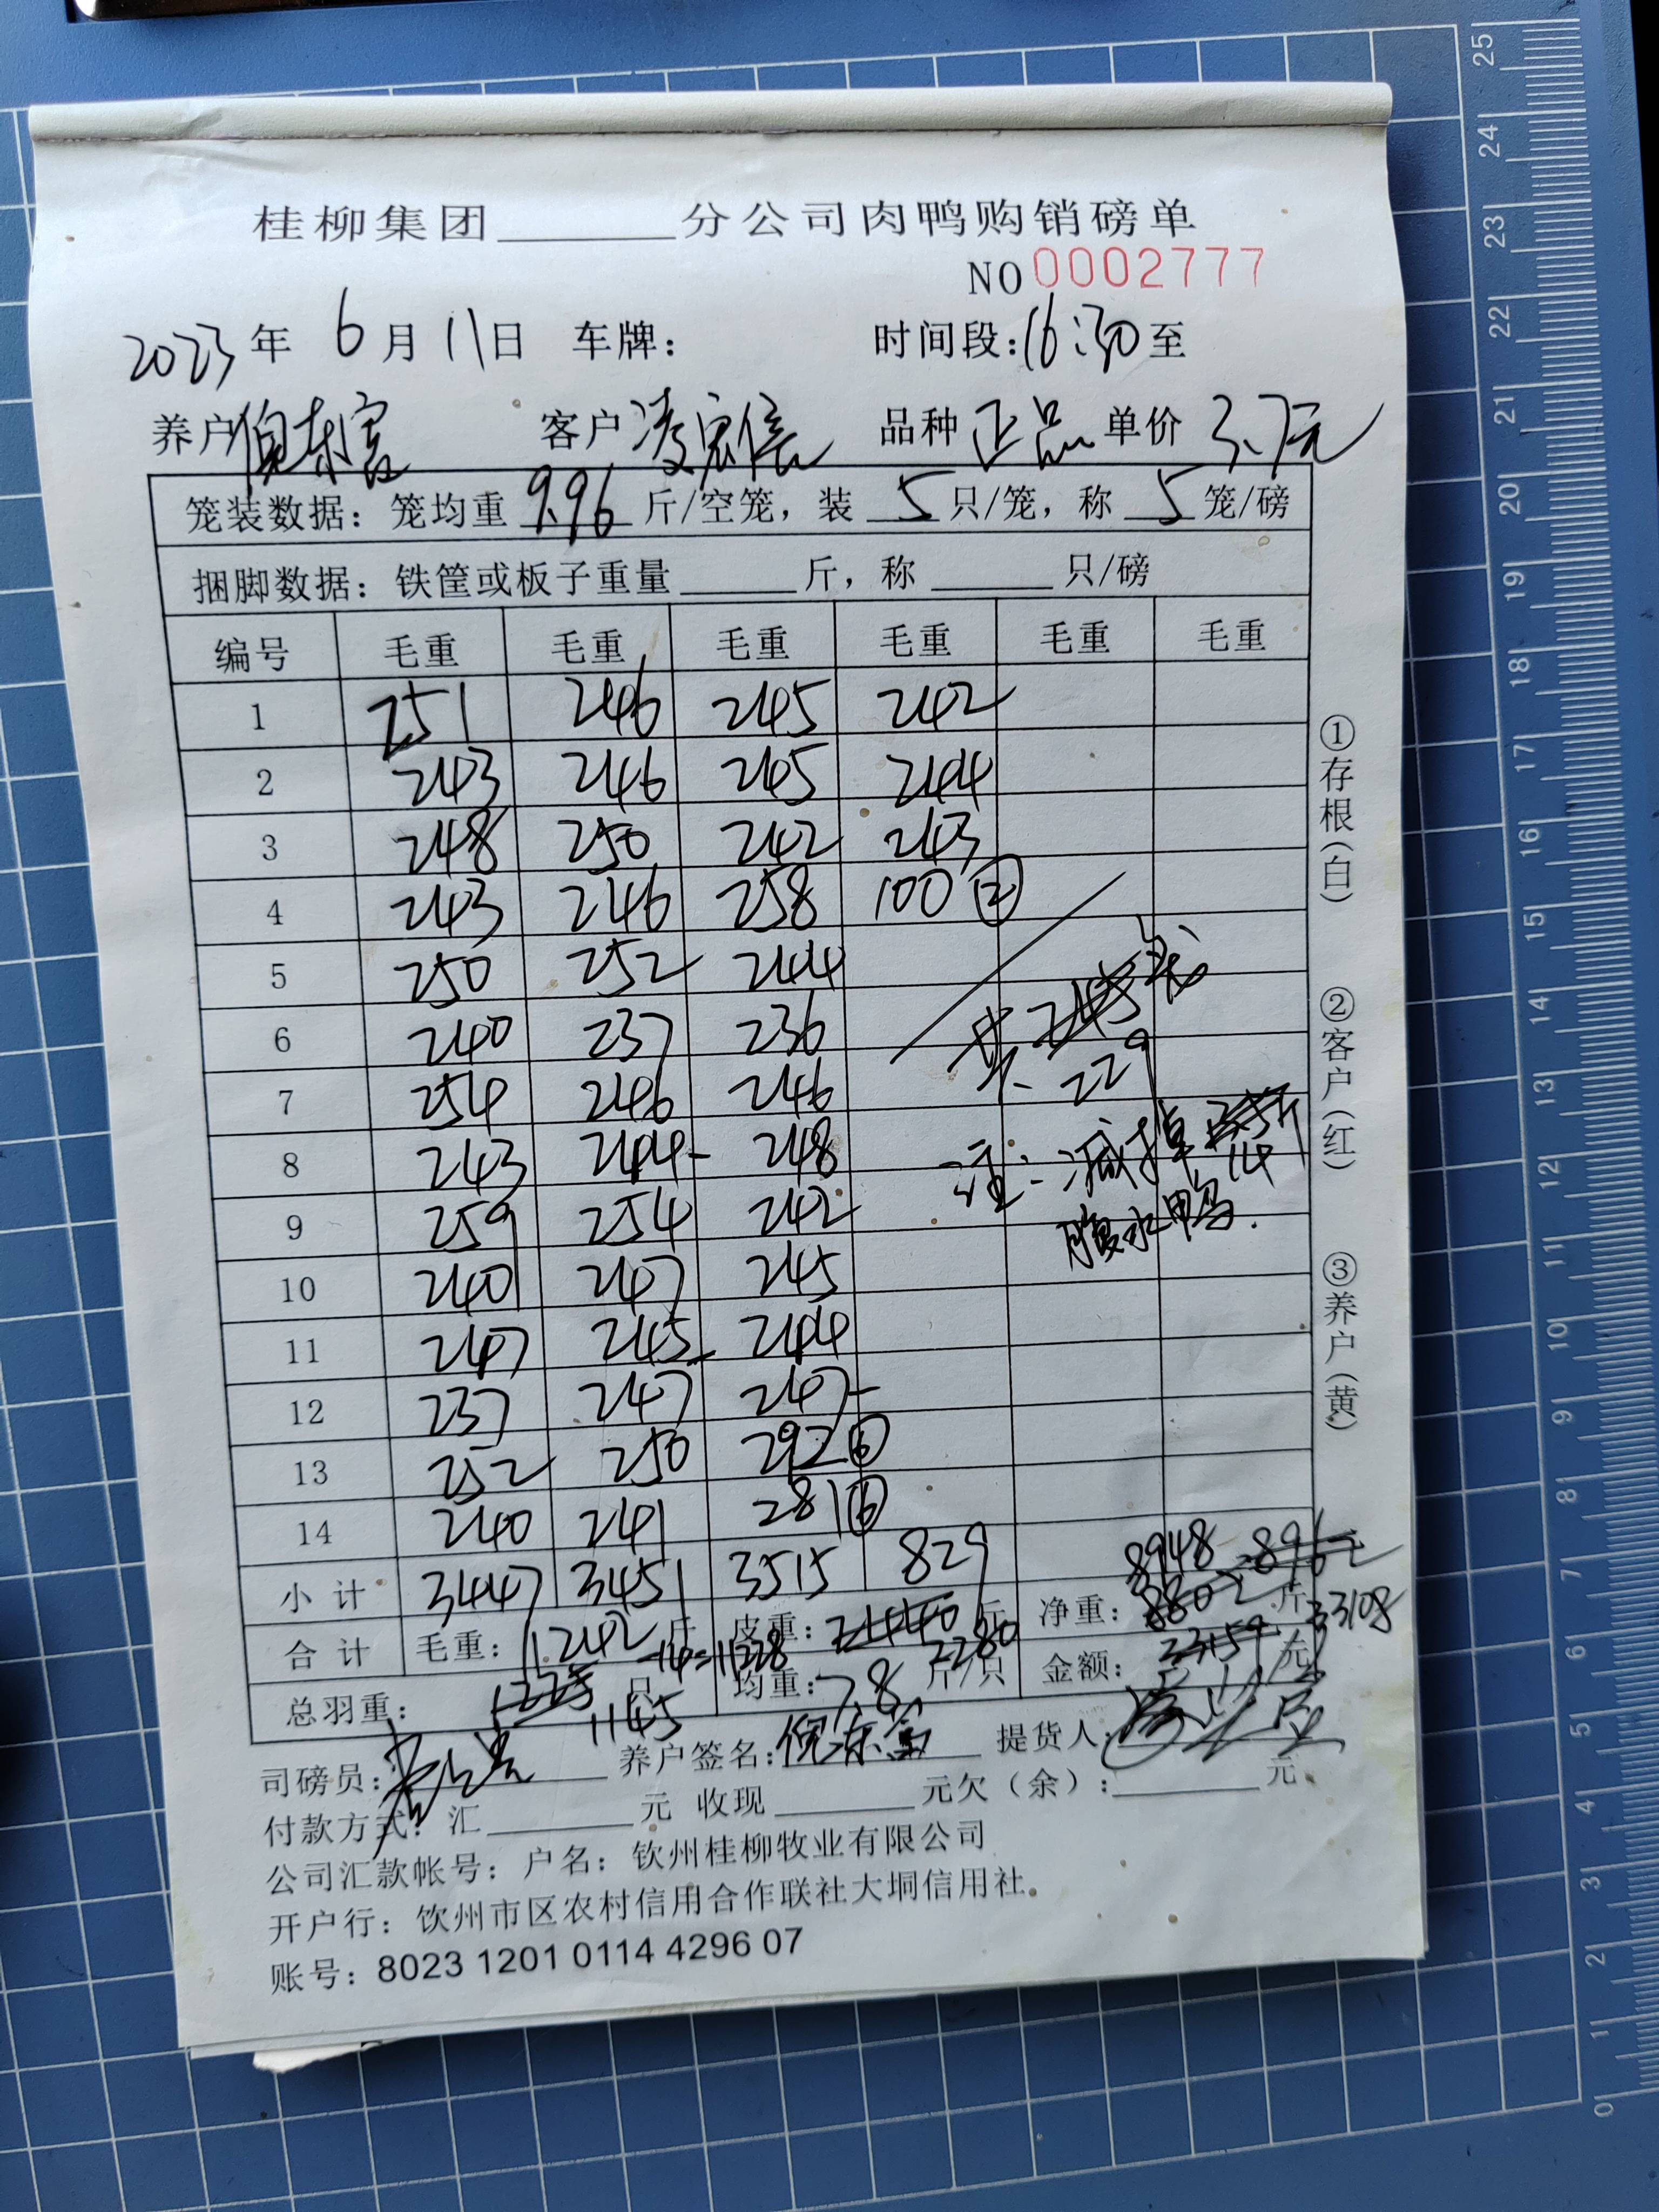 桂柳集团______分公司肉鸭购销磅单
NO 0002777
2023年 6月11日 车牌: 时间段:16:30至
养户 倪东富 客户 凌宏信 品种 正品 单价 3.7元
笼装数据: 笼均重 9.96 斤/空笼, 装 5 只/笼, 称 5 笼/磅
捆脚数据: 铁筐或板子重量______斤, 称______只/磅
编号 毛重 毛重 毛重 毛重 毛重 毛重
1 251 246 245 242
2 243 246 245 244
3 248 250 242 243
4 243 246 258 100 ②
5 250 252 244
6 240 237 236
共 245
7 254 246 246
229
8 243 244 248
注: 减掉 14
9 259 254 242
腹水鸭.
10 240 247 245
11 247 245 244
12 237 247 247
13 252 250 292 ⑥
14 240 241 281 ⑥
小计 3447 3451 3515 829
8948 896
合计 毛重: 11242 斤 -14=11228 皮重: 2440 斤 2280 净重: 8802 斤 33108
总羽重: 1225 只 1145 均重: 7.8 斤/只 金额: 33159 元
司磅员: 养户签名: 倪东富 提货人:
付款方式: 汇______元 收现______元欠(余):______元
公司汇款帐号: 户名: 钦州桂柳牧业有限公司
开户行: 钦州市区农村信用合作联社大垌信用社
账号: 8023 1201 0114 4296 07
①存根(白) ②客户(红) ③养户(黄)
25
24
23
22
21
20
19
18
17
16
15
14
13
12
11
10
9
8
7
6
5
4
3
2
1
0